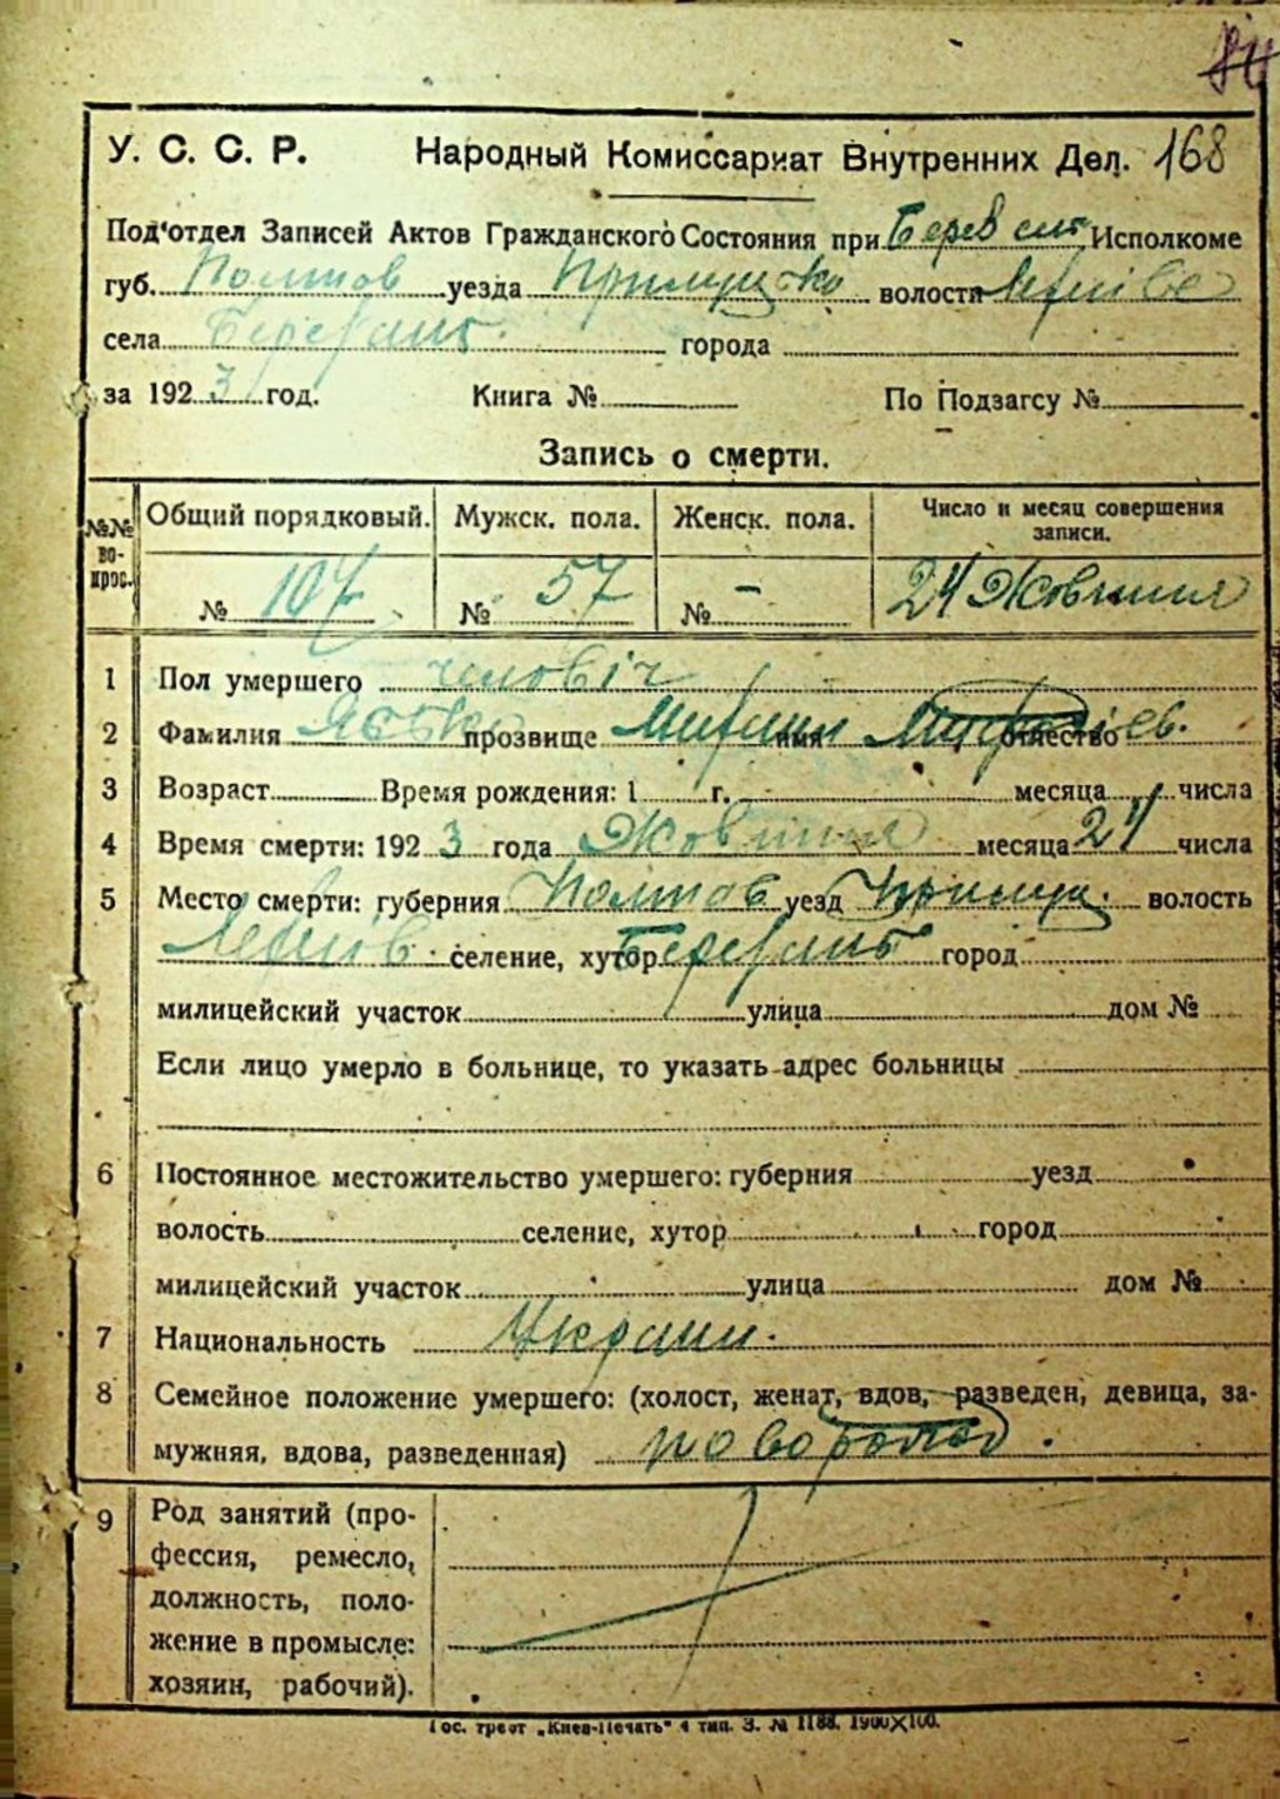 84
У. С. С. Р. Народный Комиссариат Внутренних Дел. 168
Под'отдел Записей Актов Гражданского Состояния при Исполкоме
губ. Полтов уезда волости
села города
за 1923 год. Книга № По Подзагсу №
Запись о смерти.
№№ вопрос. Общий порядковый. Мужск. пола. Женск. пола. Число и месяц совершения записи.
№ 107 № 57 № - 24 Жовтня
1 Пол умершего чоловіч
2 Фамилия прозвище имя отчество
3 Возраст Время рождения: 1 г. месяца числа
4 Время смерти: 1923 года Жовтня месяца числа
5 Место смерти: губерния Полтов уезд Прилуц. волость
селение, хутор город
милицейский участок улица дом №
Если лицо умерло в больнице, то указать адрес больницы
6 Постоянное местожительство умершего: губерния уезд
волость селение, хутор город
милицейский участок улица дом №
7 Национальность Украин.
8 Семейное положение умершего: (холост, женат, вдов, разведен, девица, за-
мужняя, вдова, разведенная)
9 Род занятий (про-
фессия, ремесло,
должность, поло-
жение в промысле:
хозяин, рабочий).
Гос. трест „Киев-Печать" 4 тип. З. № 1188. 1900×100.